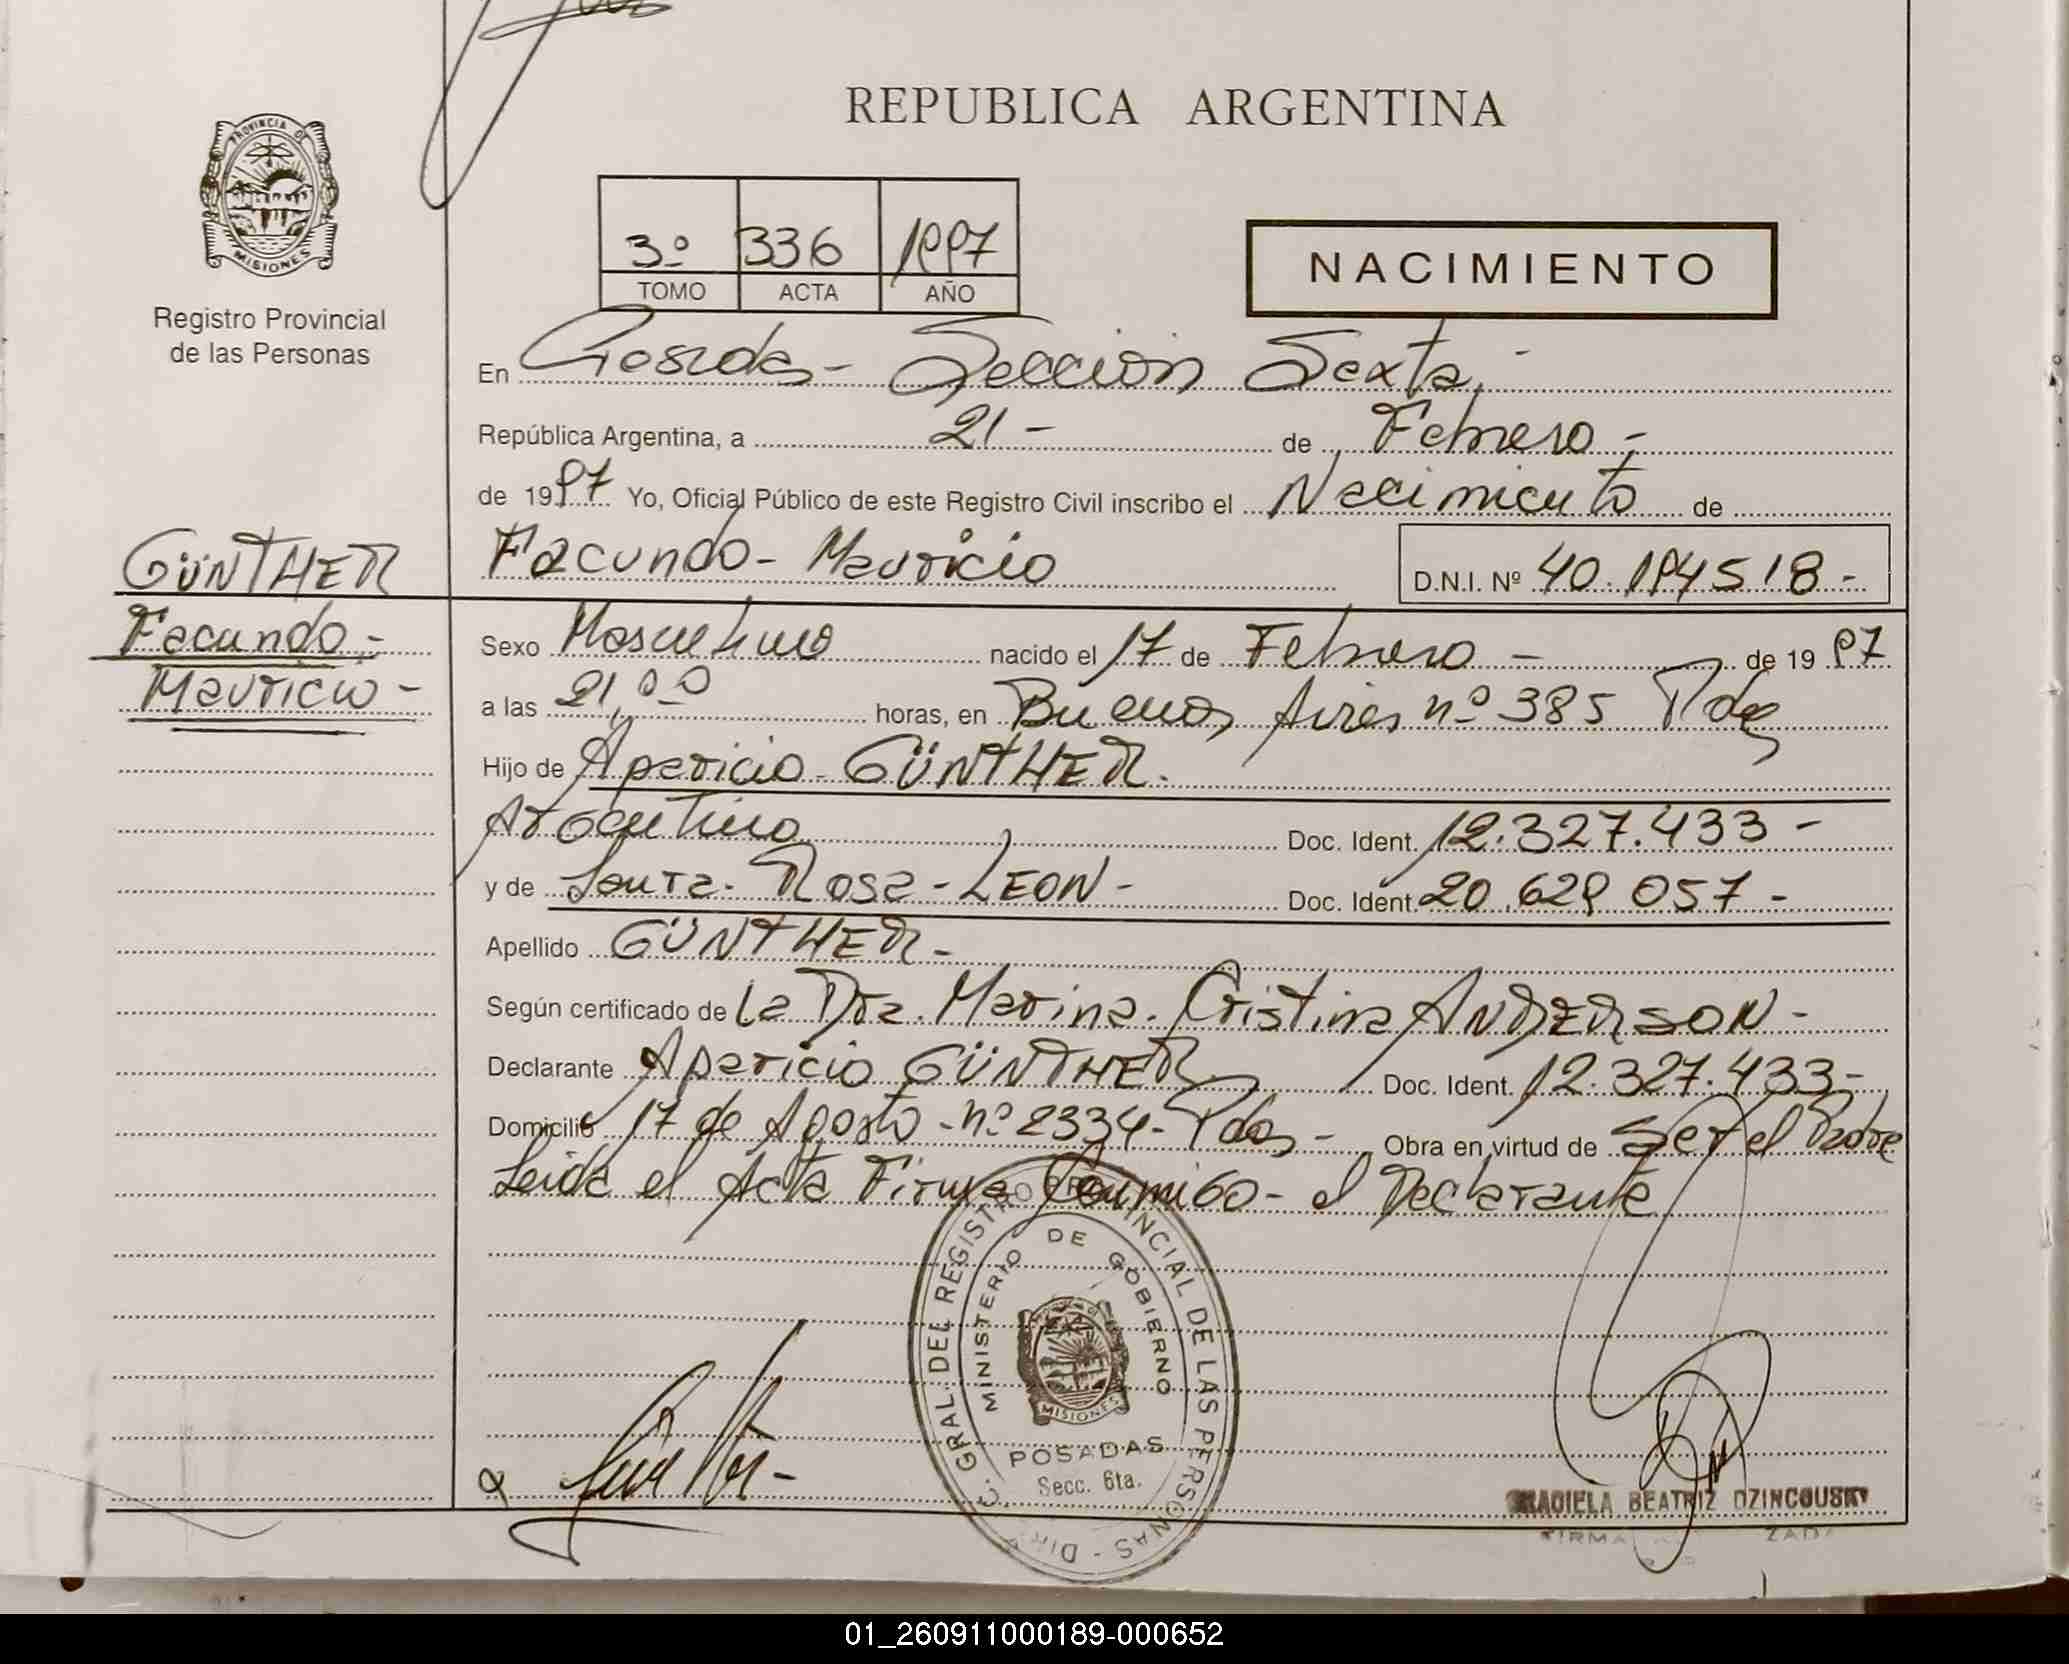 REPUBLICA ARGENTINA
PROVINCIA DE
MISIONES
Registro Provincial
de las Personas
3º 336 1997
TOMO ACTA AÑO
NACIMIENTO
En Posadas - Sección Sexta -
República Argentina, a 21 - de Febrero -
de 1997 Yo, Oficial Público de este Registro Civil inscribo el Nacimiento de
GÜNTHER
Facundo - Mauricio D.N.I. Nº 40.194518 -
Facundo -
Mauricio -
Sexo Masculino nacido el 17 de Febrero - de 1997
a las 21,00 horas, en Buenos Aires nº 385 Pdas
Hijo de Aparicio GÜNTHER.
Argentino Doc. Ident. 12.327.433 -
y de Laura - Rosa - LEON - Doc. Ident. 20.629 057 -
Apellido GÜNTHER -
Según certificado de La Dra. Marina. Cristina ANDERSON -
Declarante Aparicio GÜNTHER Doc. Ident. 12.327.433 -
Domicilio 17 de Agosto - nº 2334 - Pdas - Obra en virtud de Ser el Padre
Leida el Acta Firma Conmigo - el Declarante
DIR. GRAL. DEL REGISTRO PROVINCIAL DE LAS PERSONAS -
MINISTERIO DE GOBIERNO
MISIONES
POSADAS
Secc. 6ta.
GRACIELA BEATRIZ DZINCOUSKY
FIRMA
01_260911000189-000652